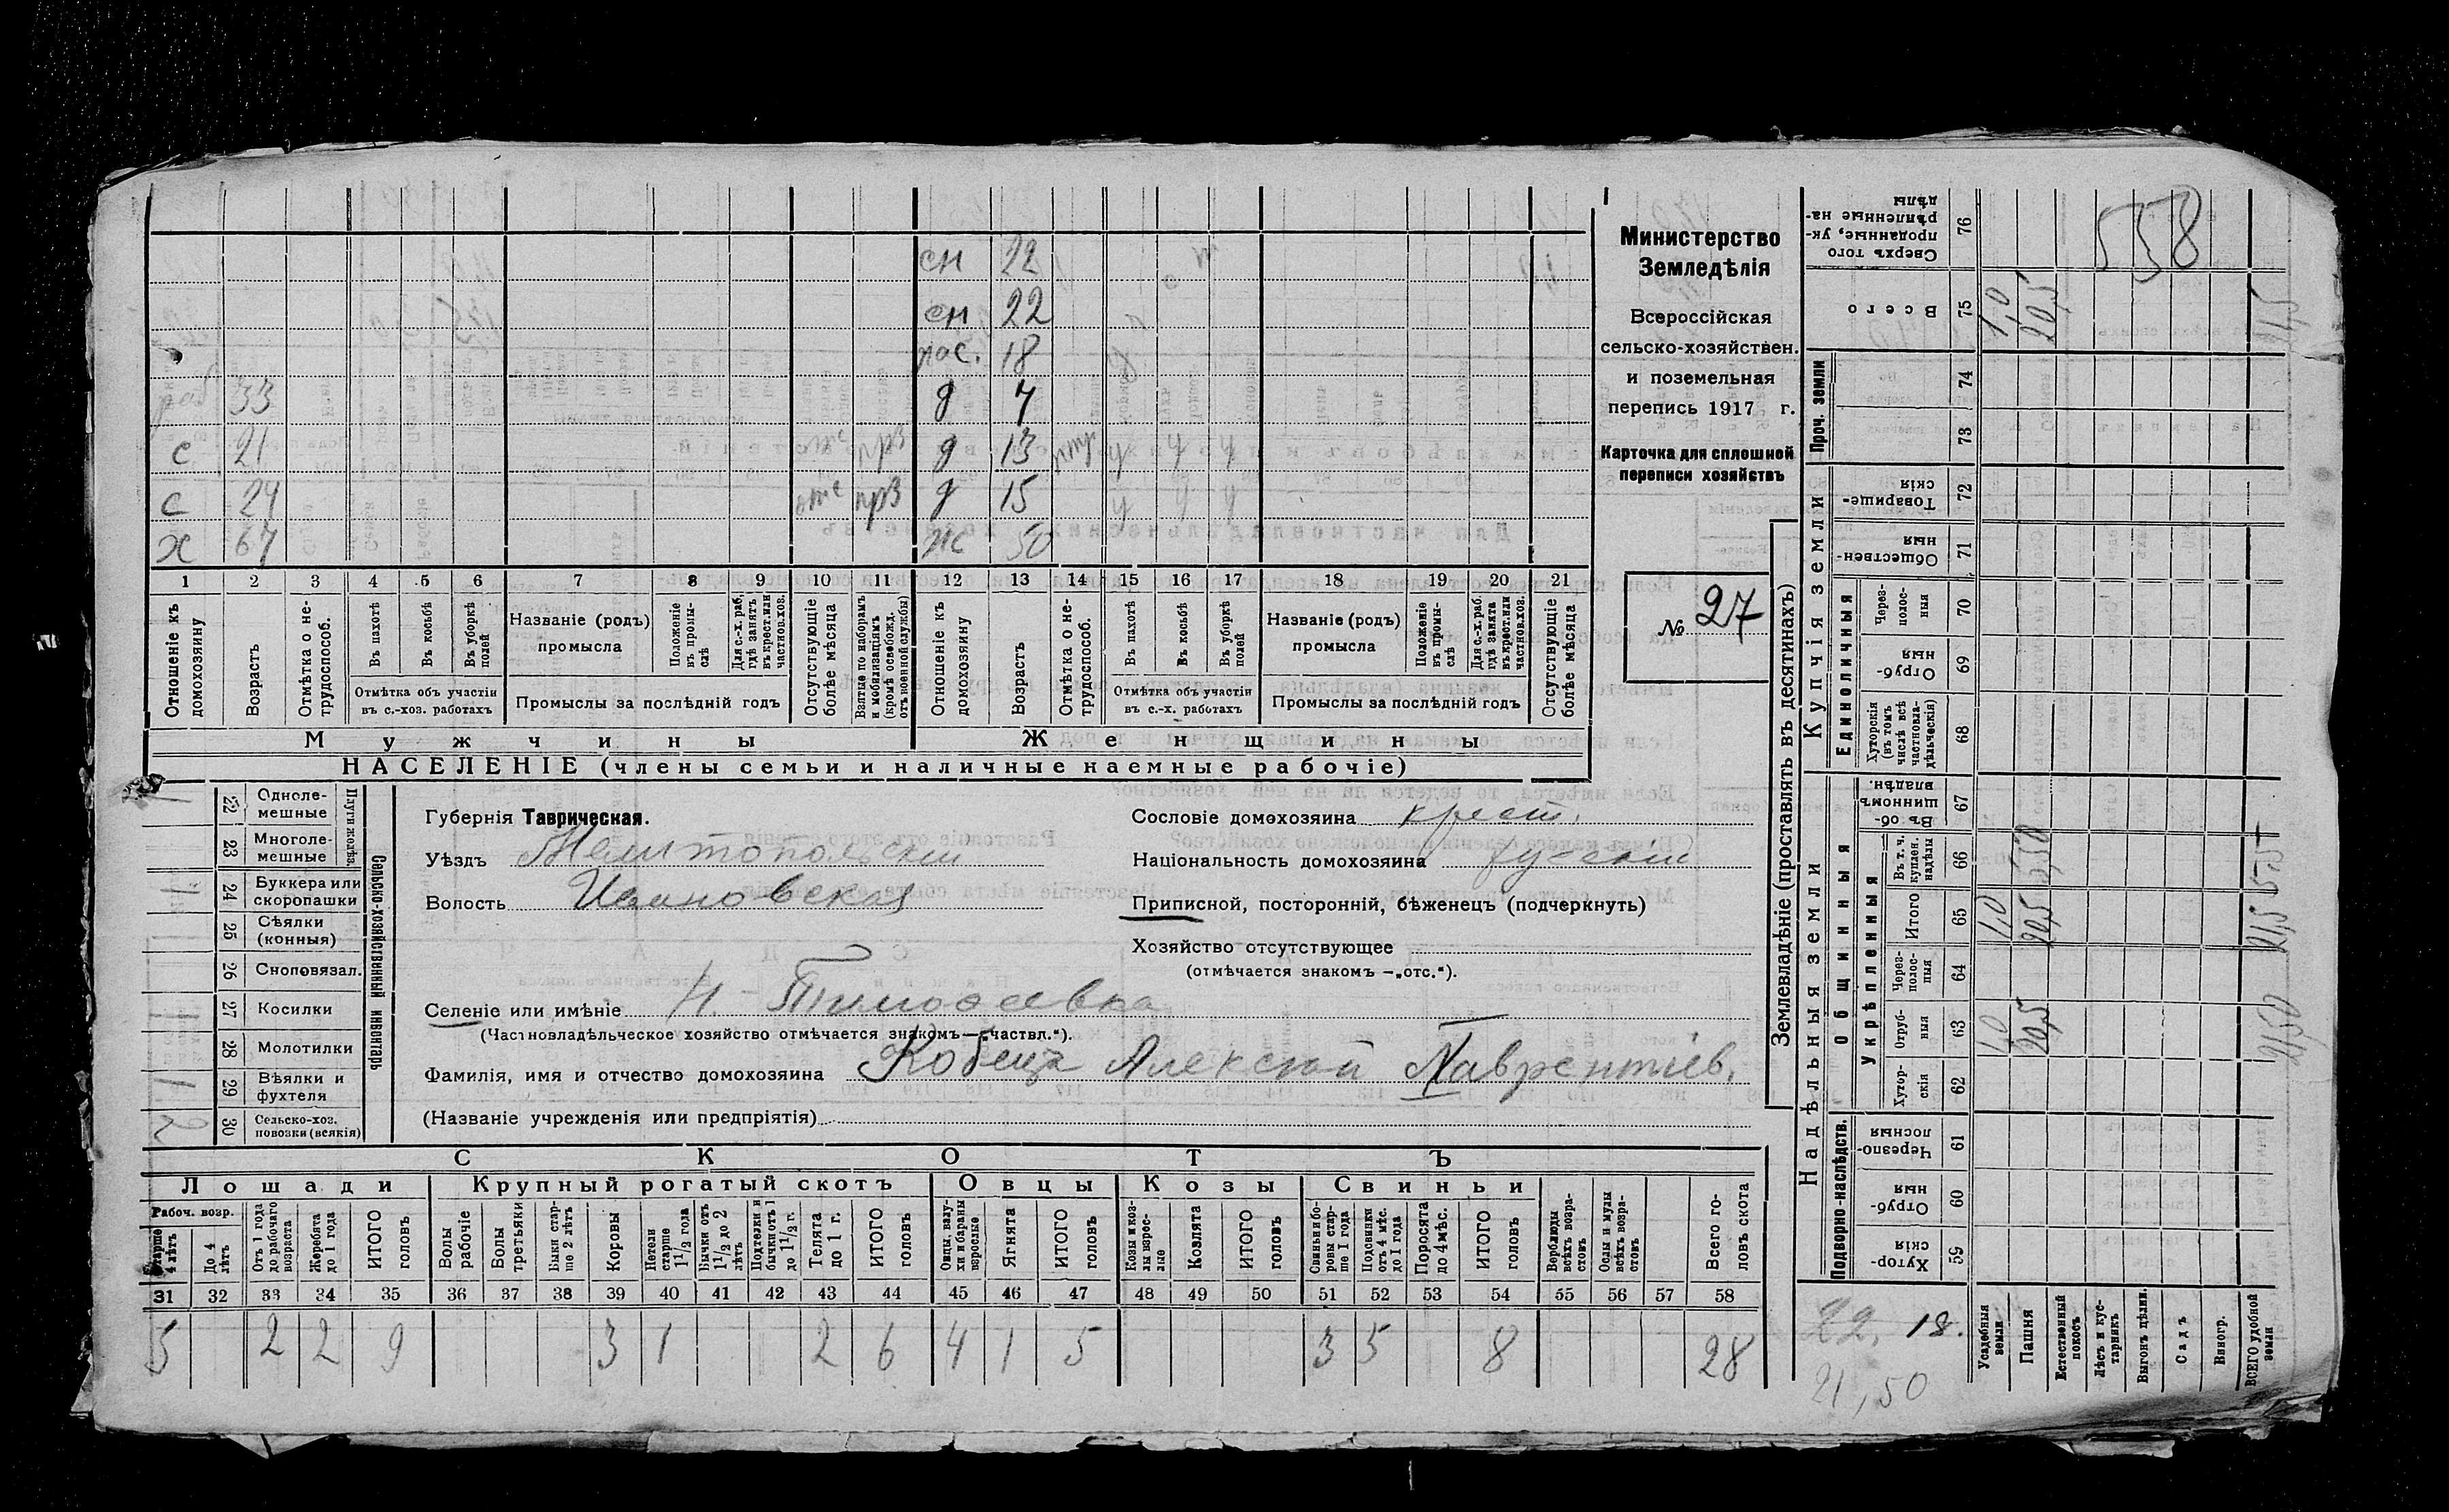 сн 22
сн 22
пос. 18
раб 33 д 7
с 21 отс прз д 13 у у у
с 24 отс прз д 15 у у у
х 67 ж 50
1 2 3 4 5 6 7 8 9 10 11 12 13 14 15 16 17 18 19 20 21
Отношеніе къ домохозяину
Возрастъ
Отмѣтка о не-трудоспособ.
Въ пахотѣ
Въ косьбѣ
Въ уборкѣ полей
Отмѣтка объ участіи
въ с.-хоз. работахъ
Названіе (родъ)
промысла
Положеніе въ промы-слѣ
Для с.-х. раб, гдѣ занятъ въ крест. или частнов. хоз.
Промыслы за послѣдній годъ
Отсутствующіе болѣе мѣсяца
Взятые по наборамъ и мобилизаціямъ (кромѣ освобожд. отъ военной службы)
Отношеніе къ домохозяину
Возрастъ
Отмѣтка о не-трудоспособ.
Въ пахотѣ
Въ косьбѣ
Въ уборкѣ полей
Отмѣтка объ участіи
въ с.-х. работахъ
Названіе (родъ)
промысла
Положеніе въ промы-слѣ
Для с.-х. раб. гдѣ занята въ крест. или частнов. хоз.
Промыслы за послѣдній годъ
Отсутствующіе болѣе мѣсяца
Мужчины Женщины
НАСЕЛЕНІЕ (члены семьи и наличные наемные рабочіе)
Министерство
Земледѣлія
Всероссійская
сельско-хозяйствен.
и поземельная
перепись 1917 г.
Карточка для сплошной
переписи хозяйствъ
№ 27
Сельско-хозяйственный инвентарь
Плуги желѣз.
22 Одноле-мешные
23 Многоле-мешные
24 Буккера или скоропашки 1
25 Сѣялки (конныя)
26 Сноповязал.
27 Косилки 1
28 Молотилки
29 Вѣялки и фухтеля 1
30 Сельско-хоз. повозки (всякія) 2
Губернія Таврическая.
Уѣздъ Мелитопольскій
Волость Ивановская
Сословіе домохозяина крест.
Національность домохозяина русскій
Приписной, посторонній, бѣженецъ (подчеркнуть)
Хозяйство отсутствующее
(отмѣчается знакомъ —„отс.“).
Селеніе или имѣніе Н.-Тимофеевка
(Частновладѣльческое хозяйство отмѣчается знакомъ—„частвл.“).
Фамилія, имя и отчество домохозяина Кобецъ Алексѣй Лаврентіев.
(Названіе учрежденія или предпріятія)
СКОТЪ
Лошади Крупный рогатый скотъ Овцы Козы Свиньи
Рабоч. возр.
Старше 4 лѣтъ
До 4 лѣтъ
Отъ 1 года до рабочаго возраста
Жеребята до 1 года
ИТОГО головъ
Волы рабочіе
Волы третьяки
Быки стар-ше 2 лѣтъ
Коровы
Нетели старше 1 1/2 года
Бычки отъ 1 1/2 до 2 лѣтъ
Подтелки и бычки отъ 1 до 1 1/2 г.
Телята до 1 г.
ИТОГО головъ
Овцы, валу-хи и бараны взрослые
Ягнята
ИТОГО головъ
Козы и коз-лы взрос-лые
Козлята
ИТОГО головъ
Свиньи и бо-ровы стар-ше 1 года
Подсвинки отъ 4 мѣс. до 1 года
Поросята до 4 мѣс.
ИТОГО головъ
Верблюды всѣхъ возра-стовъ
Ослы и мулы всѣхъ возра-стовъ
Всего го-ловъ скота
31 32 33 34 35 36 37 38 39 40 41 42 43 44 45 46 47 48 49 50 51 52 53 54 55 56 57 58
5 2 2 9 3 1 2 6 4 1 5 3 5 8 28
Землевладѣніе (проставлять въ десятинахъ)
Надѣльныя земли
Купчія земли
Проч. земли
Подворно-наслѣдств.
Общинныя
Укрѣпленныя
Единоличныя
Сверхъ того проданные, ук-рѣпленные на-дѣлы 76 558
Всего 75 1,0 20,5 21,5
74
73
Товарище-скія 72
Обществен-ныя 71
Через-полос-ныя 70
Отруб-ныя 69
Хуторскія (въ томъ числѣ всѣ частновла-дѣльческія) 68
Въ об-щинномъ владѣн. 67
Въ т. ч. куплен. надѣлы 66 5,50
Итого 65 1,0 20,5 21,5
Через-полос-ныя 64
Отруб-ныя 63 1,0 20,5 21,50
Хутор-скія 62
Черезпо-лосныя 61
Отруб-ныя 60
Хутор-скія 59
22, 18.
21,50
Усадебныя земли
Пашня
Естественный покосъ
Лѣсъ и кус-тарникъ
Выгонъ цѣлин.
Садъ
Виногр.
ВСЕГО удобной земли